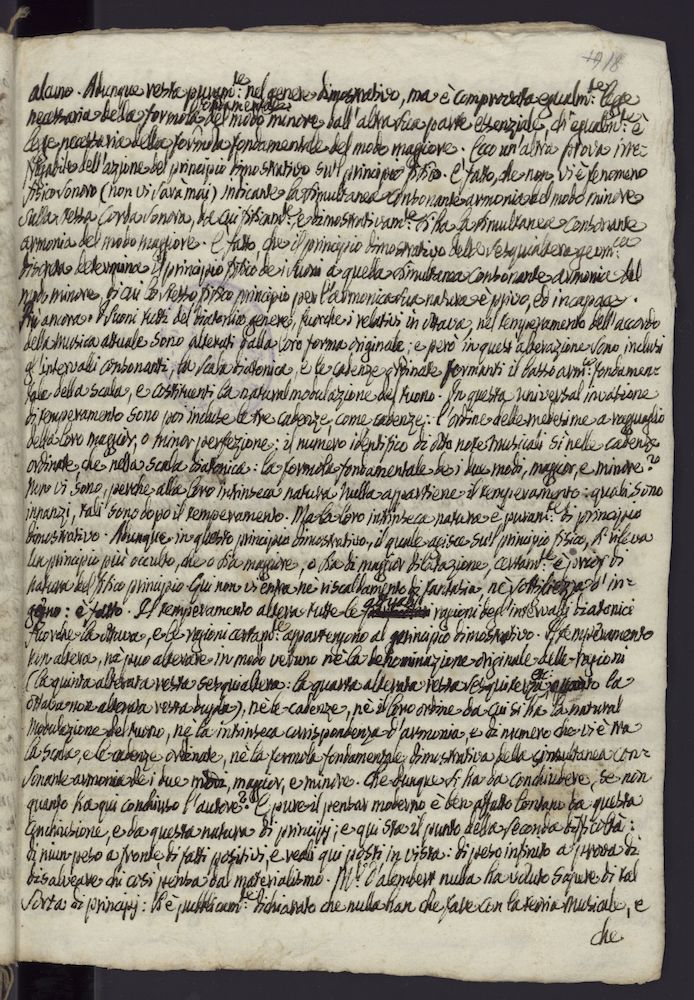 18
alcuno. Adunque resta puram.te nel genere dimostrativo, ma è comprovata egualm.te legge
necessaria della formola fondamentale del modo minore dall'altra sua parte essenziale, ch'egualm.te è
legge necessaria della formola fondamentale del modo maggiore. Ecco un'altra prova irre=
fragabile dell'azione del principio dimostrativo sul principio fisico. È fatto, che non vi è fenomeno
fisico sonoro (non vi sarà mai) indicante la simultanea consonante armonia del modo minore
sulla stessa corda sonora, da cui fisicam.te e dimostrativam.te si ha la simultanea consonante
armonia del modo maggiore. È fatto, che il principio dimostrativo della sesquialtera geom.ca
discreta determina il principio fisico de' suoni a quella simultanea consonante armonia del
modo minore, di cui lo stesso fisico principio per l'armonica sua natura è privo, ed incapace.
Più ancora. I suoni tutti del diatonico genere, fuorche i relativi in ottava, nel temperamento dell'accordo
della musica attuale sono alterati dalla loro forma originale; e però in quest'alterazione sono inclusi
gl'intervalli consonanti, la scala diatonica, e le cadenze ordinate formanti il basso arm.co fondamen=
tale della scala, e costituenti la natural modulazione del tuono. In questa universal mutazione
di temperamento sono poi incluse le tre cadenze, come cadenze; l'ordine delle medesime a ragguaglio
della loro maggior, o minor perfezione; il numero identifico di otto note musicali sì nelle cadenze
ordinate, che nella scala diatonica: la formola fondamentale de i due modi, maggior, e minore?
Non vi sono, perche alla loro intrinseca natura nulla appartiene il temperamento: quali sono
innanzi, tali sono dopo il temperamento. Ma la loro intrinseca natura è puram.te di principio
dimostrativo. Adunque in questo principio dimostrativo, il quale agisce sul principio fisico, si rileva
un principio più occulto, che o sia maggiore, o sia di maggior dilatazione, certam.te è prior di
natura del fisico principio. Qui non vi entra nè riscaldamento di fantasia, nè sottigliezza d'in=
gegno: è fatto. Il temperamento altera tutte le ragioni degl'intervalli diatonici
fuorche la ottava, e le ragioni certam.te appartengono al principio dimostrativo. Il temperamento
non altera, nè può alterare in modo veruno nè la denominazione originale delle ragioni
(la quinta alterata resta sesquialtera: la quarta alterata resta sesquiterza: la
ottava non alterata resta dupla), nè le cadenze, nè il loro ordine da cui si ha la natural
modulazione del tuono, nè la intrinseca corrispondenza d'armonia, e di numero che vi è tra
la scala, e le cadenze ordinate, nè la formola fondamentale dimostrativa della simultanea con=
sonante armonia de i due modi, maggior, e minore. Che dunque si ha da conchiudere, se non
quanto ha qui conchiuso l'autore? E pure il pensar moderno è ben affatto lontano da questa
conchiusione, e da questa natura di principj; e qui sta il punto della seconda difficoltà:
di niun peso a fronte di fatti positivi, e reali qui posti in vista: di peso infinito a prova di
disalveare chi così pensa dal materialismo. M.r d'Alembert nulla ha voluto sapere di tal
sorta di principj: si è pubblicam.te dichiarato che nulla han che fare con la teoria musicale, e
che